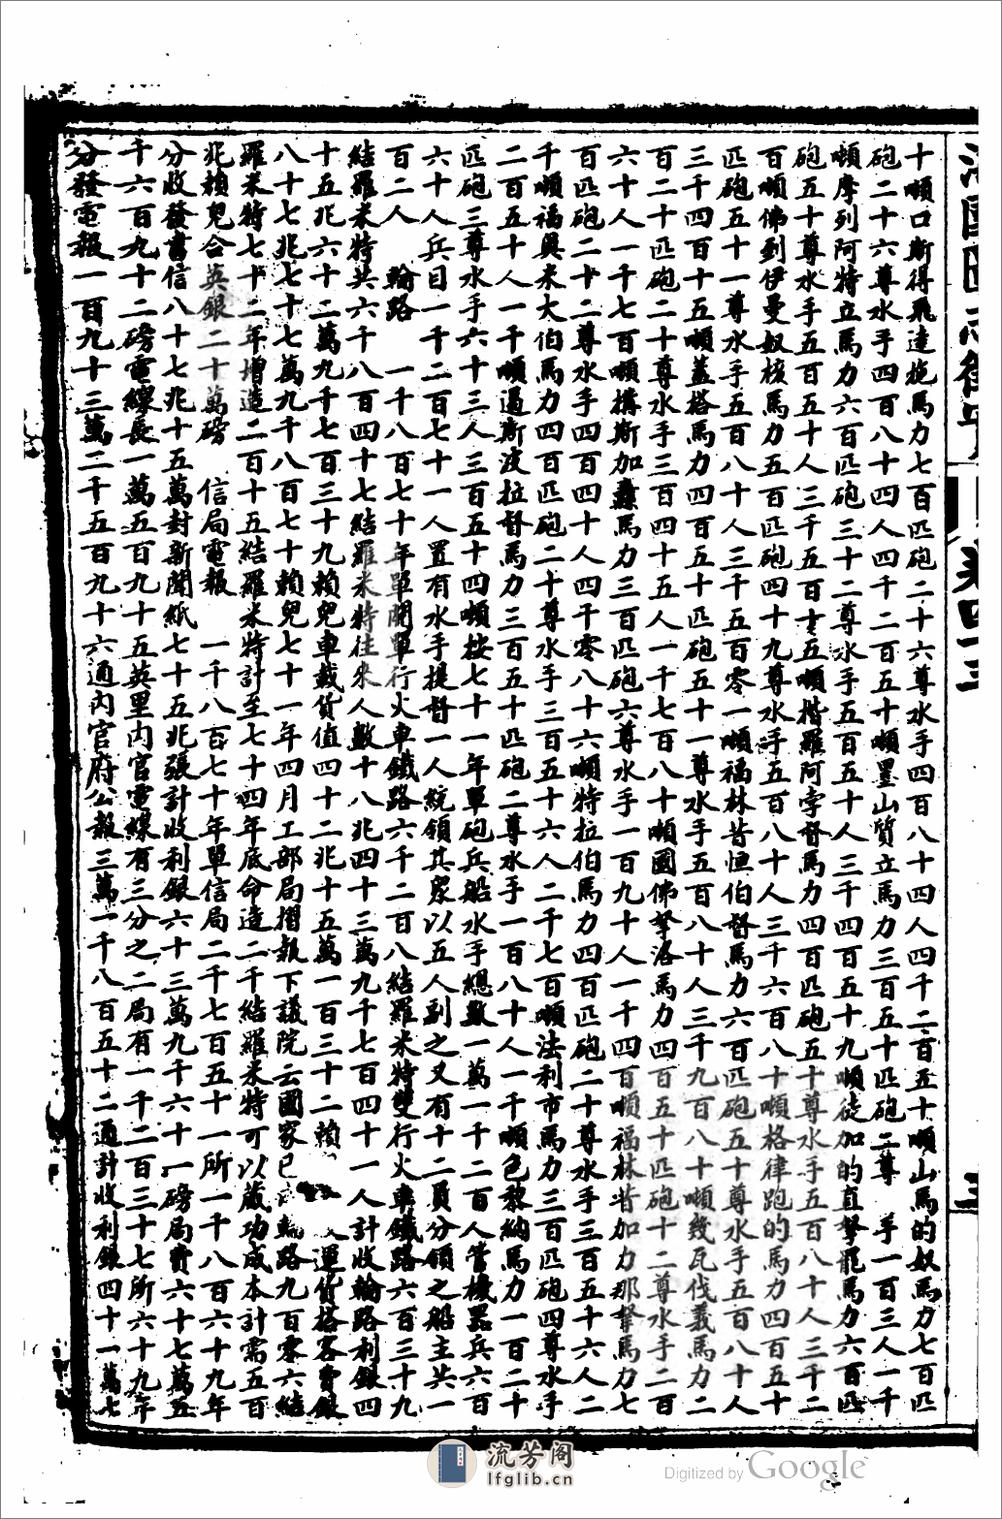 十噸口斯得飛達施馬力七百匹砲二十六尊水手四百八十四人四千二百五十噸山馬的奴馬力七百匹
砲二十六尊水手四百八十四人四千二百五十噸墨山質立馬力三百五十匹砲二尊 手一百三人一千
噸摩列阿特立馬力六百匹砲三十二尊水手五百五十人三千四百五十九噸徒加的直拏罷馬力六百匹
砲五十尊水手五百五十人三千五百十五噸楷羅阿孛督馬力四百匹砲五十尊水手五百八十人三千二
百噸佛到伊曼奴核馬力五百匹砲四十九尊水手五百八十人三千六百八十噸格律跑的馬力四百五十
匹砲五十一尊水手五百八十人三千五百零一噸福林昔恒伯督馬力六百匹砲五十尊水手五百八十人
三千四百十五噸蓋塔馬力四百五十匹砲五十一尊水手五百八十人三千九百八十噸幾瓦伐義馬力二
百二十匹砲二十尊水手三百四十五人一千七百八十噸國佛拏洛馬力四百五十匹砲十二尊水手二百
六十人一千七百噸搆斯加馬力三百匹砲六尊水手一百九十人一千四百噸福林昔加力那拏馬力七
百匹砲二十二尊水手四百四十人四千零八十六噸特拉伯馬力四百匹砲二十尊水手三百五十六人二
千噸福與米大伯馬力四百匹砲二十尊水手三百五十六人二千七百噸法利市馬力三百匹砲四尊水手
二百五十人一千噸過斯波拉督馬力三百五十匹砲二尊水手一百八十人一千噸色黎納馬力一百二十
匹砲三尊水手六十三人三百五十四噸按七十一年單砲兵船水手總數一萬一千二百人管機器兵六百
六十人兵目一千二百七十一人置有水手提督一人統領其眾以五人副之又有十二員分領之船主共一
百二人 輪路 一千八百七十年單開單行火車鐵路六千二百八結羅米特雙行火車鐵路六百三十九
結羅米特共六千八百四十七結羅米特往來人數十八兆四十三萬九千七百四十一人計收輪路利銀四
十五兆六十二萬九千七百三十九賴兒車載貨值四十二兆十五萬一百三十二賴 人運貨搭客費銀
八十七兆七十七萬九千八百七十賴兒七十一年四月工部局摺報下議院云國家已 輪路九百零六結
羅米特七十二年增造二百十五結羅米特計至七十四年底命造二千結羅米特可以蕆功成本計需五百
兆賴兒合英銀二十萬磅 信局電報 一千八百七十年單信局二千七百五十一所一千八百六十九年
分收發書信八十七兆十五萬封新聞紙七十五兆張計收利銀六十三萬九千六十一磅局費六十七萬五
千六百九十二磅電線長一萬五百九十五英里內官電線有三分之二局有一千二百三十七所六十九年
分發電報一百九十三萬二千五百九十六通內官府公報三萬一千八百五十二通計收利銀四十一萬七
卷四十三
三
流芳阁
lfglib.cn
Digitized by Google